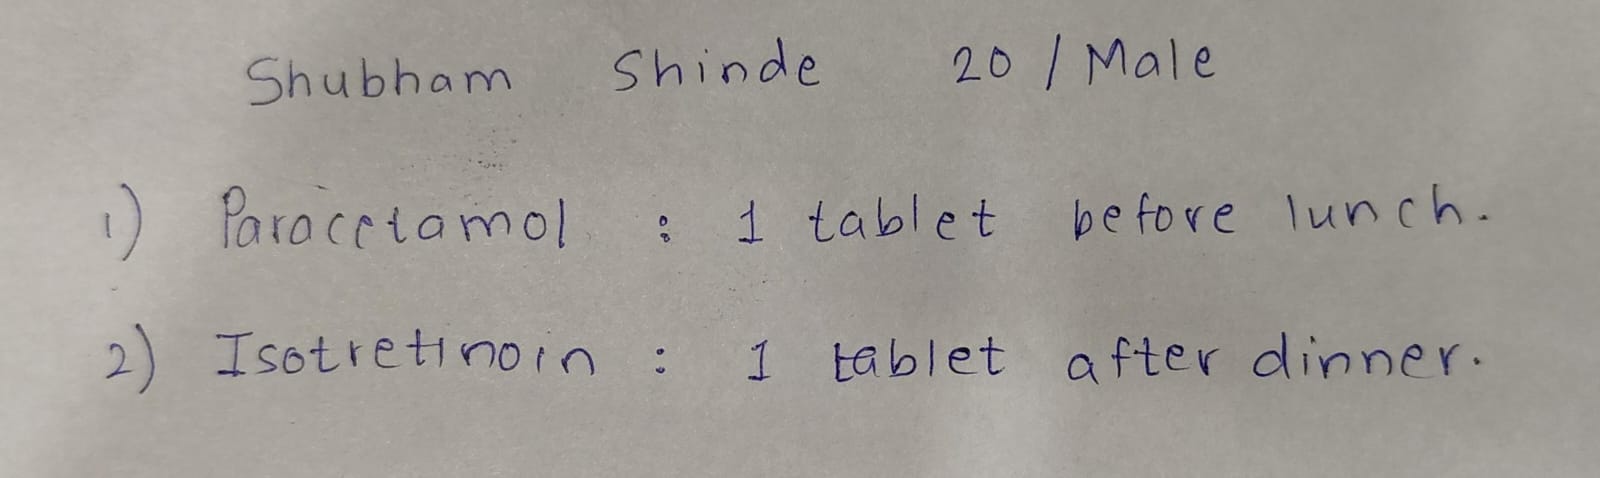 Shubham Shinde 20 / Male
1) Paracetamol : 1 tablet before lunch.
2) Isotretinoin : 1 tablet after dinner.